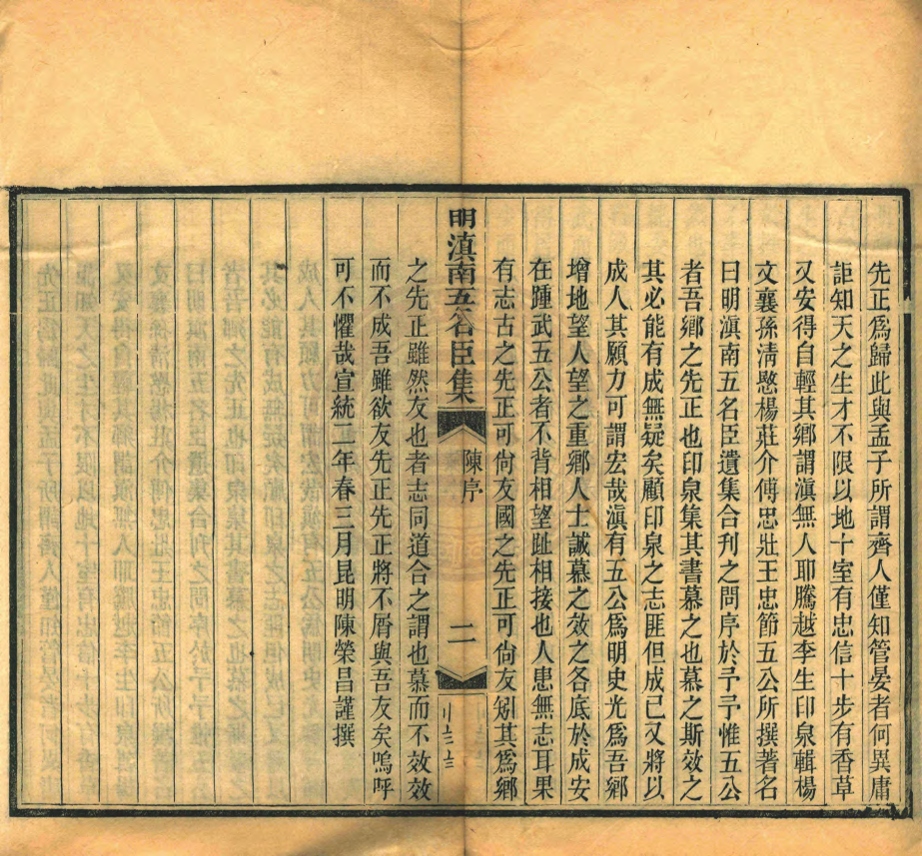 先正爲歸此與孟子所謂齊人僅知管晏者何異庸
詎知天之生才不限以地十室有忠信十步有香草
又安得自輕其鄉謂滇無人耶騰越李生印泉輯楊
文襄孫清愍楊莊介傅忠壯王忠節五公所撰著名
曰明滇南五名臣遺集合刊之問序於予予惟五公
者吾鄉之先正也印泉集其書慕之也慕之斯效之
其必能有成無疑矣顧印泉之志匪但成已又將以
成人其願力可謂宏哉滇有五公爲明史光爲吾鄉
增地望人望之重鄉人士誠慕之效之各底於成安
在踵武五公者不背相望趾相接也人患無志耳果
有志古之先正可尙友國之先正可尙友矧其爲鄉
明滇南五名臣集
陳序
二
之先正雖然友也者志同道合之謂也慕而不效效
而不成吾雖欲友先正先正將不屑與吾友矣嗚呼
可不懼哉宣統二年春三月昆明陳榮昌謹撰